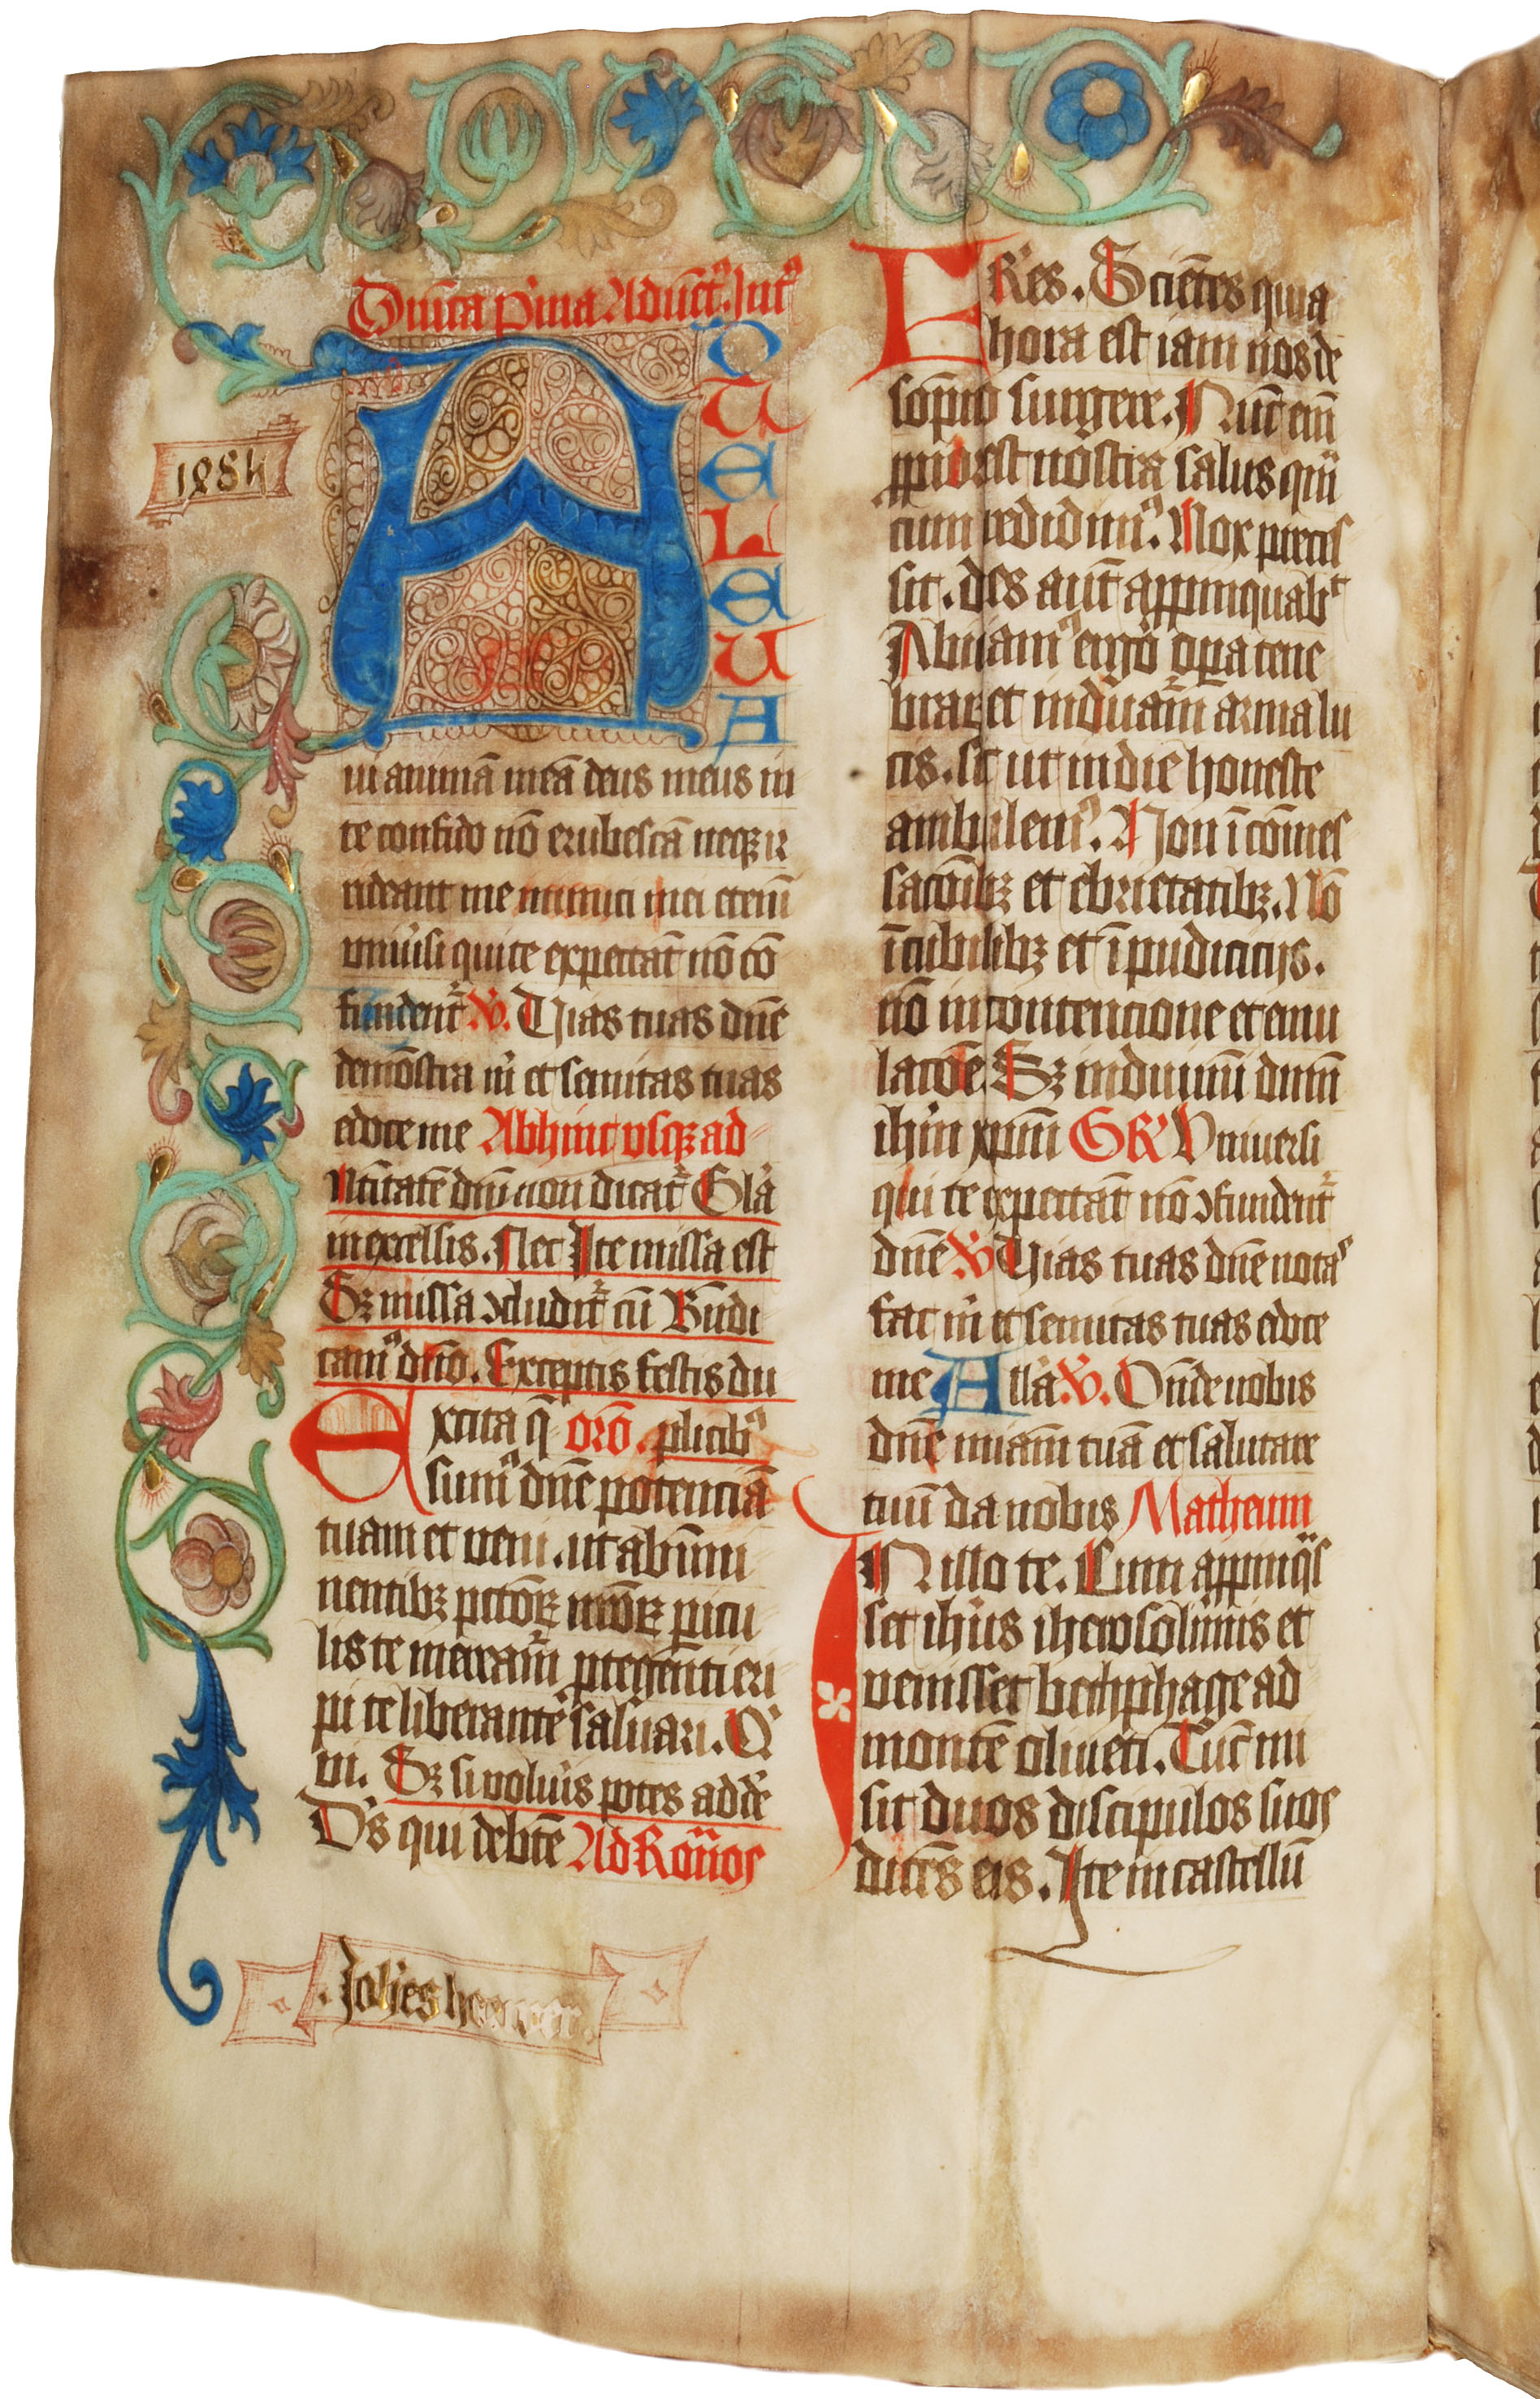 Dn̄ica p̄ma Aduēt⁹. Int⁹
A
D
T
E
L
E
U
A
1484
ui animā meā deus meus in
te confido nō erubescā neqȝ ir
rideant me inimici mei etem̄
uniu̓si qui te expectāt nō cō
fundent᷑ V̓. Uias tuas dn̄e
demōstra m̓ et semitas tuas
edoce me Abhinc vsqȝ ad
Natiuitatē dn̄i non dicat᷑ Glā
in excelsis. Nec Ite missa est
Sȝ missa ɔcludit᷑ cū Bn̄di
cam⁹ dn̄o. Exceptis festis du
Excita q̄ Orō. plicib⁹
sum⁹ dn̄e potenciā
tuam et veni. ut ab īmi
nentibȝ pctōꝝ nr̄oꝝ ꝑicu
lis te meream᷑ ꝓtegenti eri
pi te liberante saluari. Q̓
ui. Sȝ si volu̓is potes adde̓
D̓s qui de bt̄e Ad Romāos
.Joh̄es
FRe̓s. Sciētes quia
hora est iam nos de
sōpno surgere. Nūc em̄
ꝓpior est nostra salus qm̄
cum credidim⁹. Nox precis
sit. dies aūt appropinquabit
Abiciam⁹ ergo oꝑa tene
braꝝ et induam᷑ arma lu
cis. sic ut in die honeste
ambulem⁹. Non ī cōmes
sacōibȝ et ebrietatibȝ. Nō
ī cubilibȝ et ī pudicicijs.
nō in contencione et emu
lacōe. Sȝ induimī dnm̄
ihm̄ xpm̄ GR̓ Vniuersi
qui te expectāt nō ɔfundent᷑
dn̄e V̓ Uias tuas dn̄e notas
fac m̓ et semitas tuas edoce
me All̄a V̓. Ostn̄de nobis
dn̄e miām tuā et salutare
tuū da nobis Matheum
IN illo te. Cum appinq̓s
set ihūs iherosolimis et
venisset bethphage ad
montē oliueti. Tūc mi
sit duos discipulos suos
dicēs eis. Ite in castellū